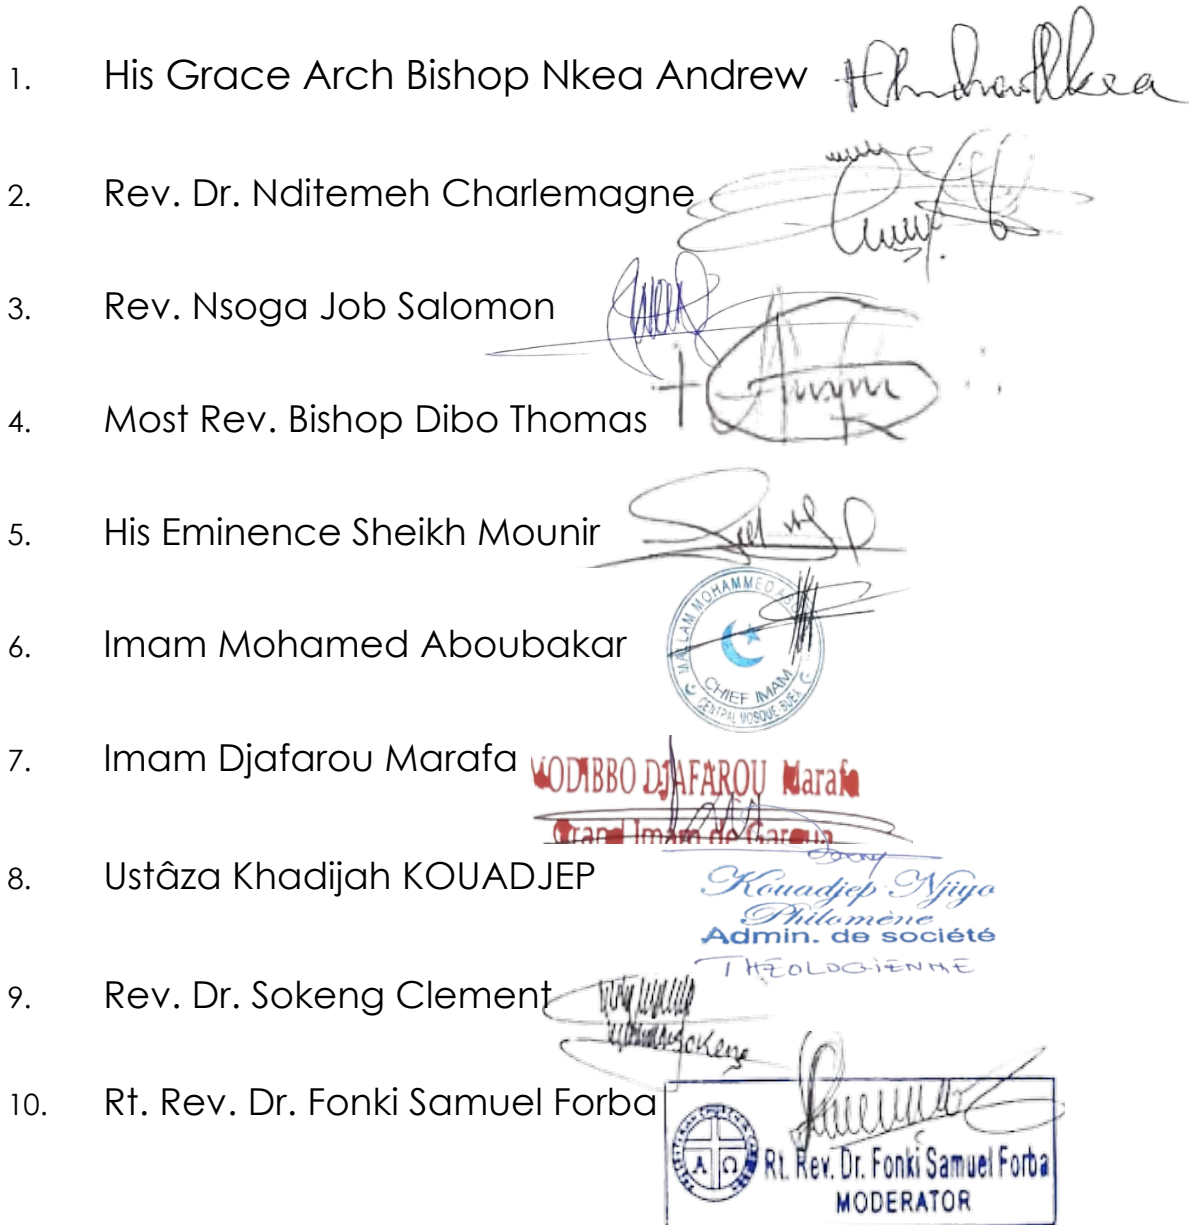 1. His Grace Arch Bishop Nkea Andrew
2. Rev. Dr. Nditemeh Charlemagne
3. Rev. Nsoga Job Salomon
4. Most Rev. Bishop Dibo Thomas
5. His Eminence Sheikh Mounir
6. Imam Mohamed Aboubakar
MALLAM MOHAMMED
CHIEF IMAM
CENTRAL MOSQUE BUEA
7. Imam Djafarou Marafa
MODIBBO DJAFAROU Marafa
Grand Imam de Garoua
8. Ustâza Khadijah KOUADJEP
Kouadjep Njiyo
Philomène
Admin. de société
THEOLOGIENNE
9. Rev. Dr. Sokeng Clement
Sokeng
10. Rt. Rev. Dr. Fonki Samuel Forba
Α Ω
Rt. Rev. Dr. Fonki Samuel Forba
MODERATOR